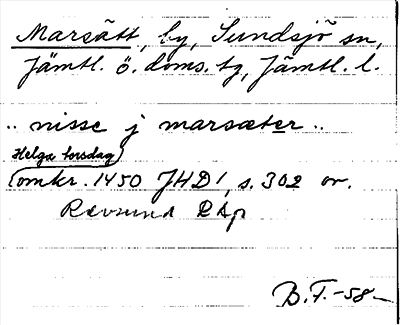 Marsätt, by, Sundsjö sn,
Jämtl. ö. doms. tg, Jämtl. l.
.. nisse j marsæter ..
Helga torsdag
(omkr. 1450 JHD 1, s. 302 or.
Revsund
B.F. -58-